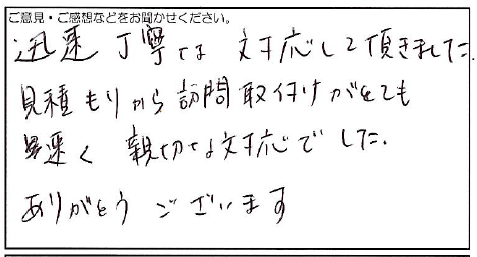 ご意見・ご感想などをお聞かせください。
迅速 丁寧な 対応して頂きました。
見積もりから訪問取付けがとても
早速く 親切な対応でした。
ありがとう ございます